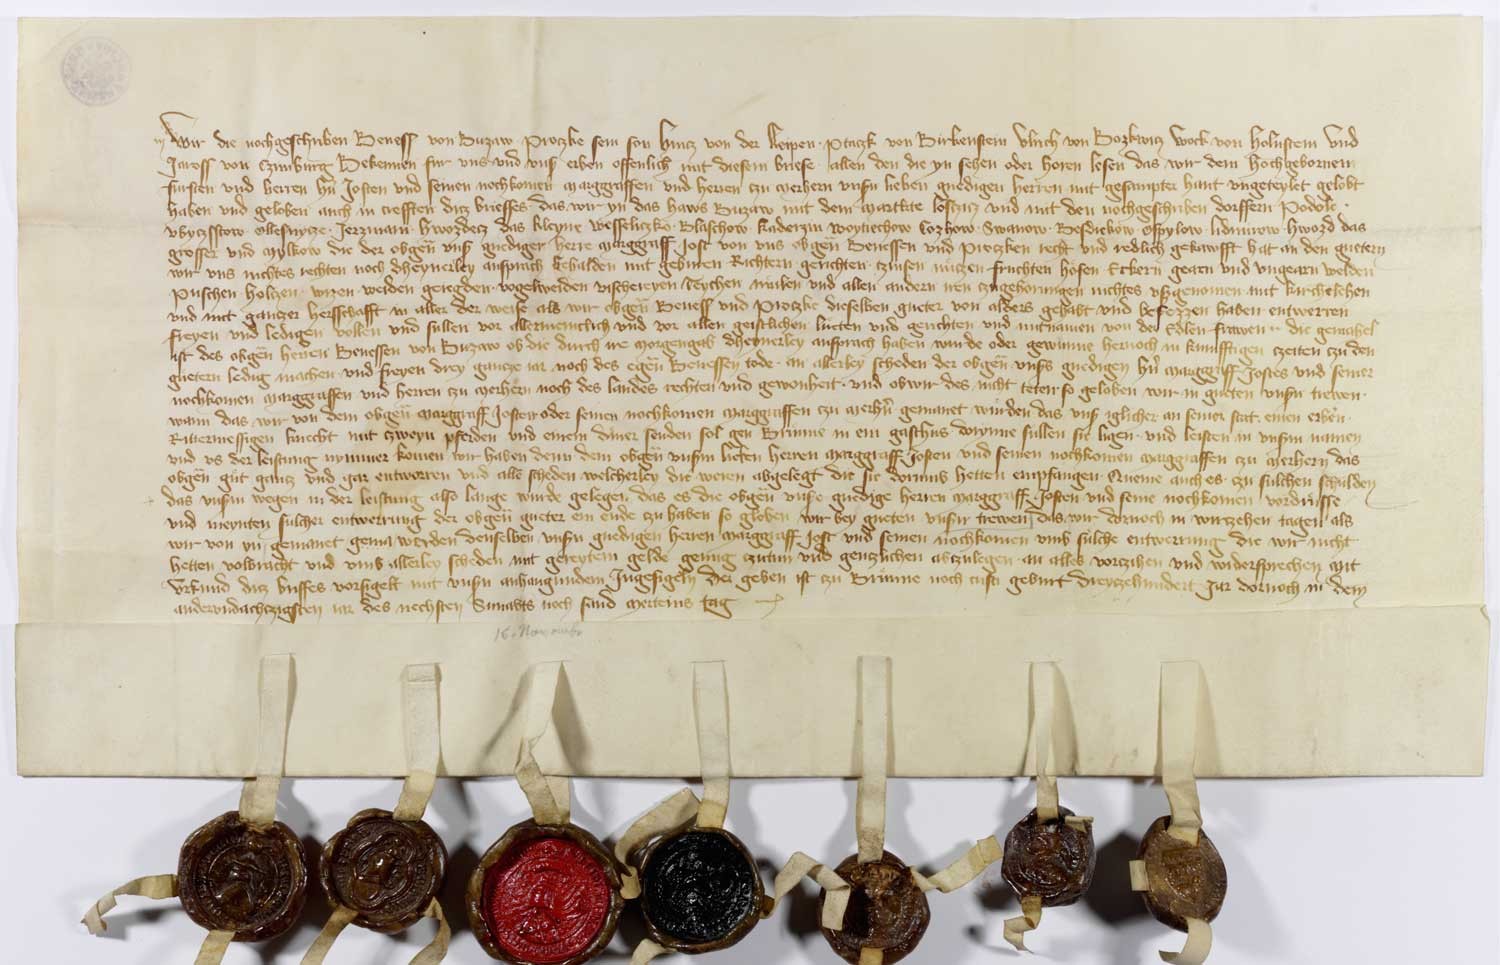 Wir die nochgeschriben Beness von Buzaw Proczke sein son hincz von der Leipen Ptaczk von Birkenstein Ulrich von Bozkwicz Wock von holnstein vnd
Jaross von Czimburg Bekennen fur vns vnd vnsr erben offenlich mit diesem briefe allen den die yn sehen oder horen lesen das wir dem hochgebornen
fursten vnd herren hern Josten vnd seinen nochkomen marggraffen vnd herren czu merhern vnsrn lieben gnedigen herren mit gesampter hant vngeteylet gelobt
haben vnd geloben auch in crefften dicz briefes das wir yn das haws Buzaw mit dem markte losticz vnd mit den nochgeschriben dorffern Podole
vbyczstow ollesnycze Jerzmann hwozdecz das kleyne wesseliczko Blaschow kaderzin woytiechow Cozhow Swanow Besdiekow Ospylow lidmirow hwozd das
grosser vnd mylkow die der obgen vnsr gnediger herre marggraff Jost von vns obgen Benessen vnd Proczken recht vnd redlich gekawfft hat an den guetern
wir vns nichtes rechten noch dheynerley ansprach behalden mit gehuren Richtern gerichten czinsen nuczen fruchten hofen Erkern gearn vnd vngearn welden
Puschen holczen wizen weiden gejegden vogelweiden vischereyen Teychen mulen vnd allen andern iren czugehorungen nichtes vszgenomen mit kirchelehen
vnd mit ganczer herschafft in aller der weise als wir obgen Beness vnd Proczke dieselben gueter von alders gehabt vnd besezzen haben entwerren
freyen vnd ledigen wollen vnd sullen vor allermeniclich vnd vor allen geistlichen luten vnd gerichten vnd mitnamen von der Edlen frawen .. die gemahel
ist des obgen herren Benessen von Buzaw ob die durch ire morgengab dheynerley ansprach haben wurde oder gewinne hernoch in kumfftigen czeiten czu den
guetern ledig machen vnd freyen drey gancze iar noch des egen Benessen tode an allerley scheden der obgen vnsrs gnedigen hern marggraff Jostes vnd seiner
nochkomen marggraffen vnd herren czu merhern noch des landes rechten vnd gewonheit vnd ob wir des nicht teten so geloben wir in gueten vnsrn trewen
wann das wir von dem obgen marggraff Josten oder seinen nochkomen marggraffen czu merhern gemanet wurden das vnsr iglicher an seiner stat einen erbern
Rittermessigen knecht mit czweyn pferden vnd einem diner senden sol gen Brunne in ein gasthus dorynne sullen sie ligen vnd leisten in vnsrm namen
vnd vs der leistung nymmer komen wir haben denn dem obgen vnsrm lieben herren marggraff Josten vnd seinen nochkomen marggraffen czu merhern das
obgen gut gancz vnd gar entworren vnd alle scheden welcherley die weren abgelegt die sie dorumb hetten empfangen Queme auch es czu sulchen schulden
das vnsrn wegen in der leistung also lange wurde gelegen das es die obgen vnsre gnedige herren marggraff Josten vnd seine nochkomen vordrisse
vnd meynten sulcher entwerrung der obgen gueter ein ende czu haben so globen wir bey gueten vnsrn trewen das wir dornoch in virczehen tagen als
wir von yn gemanet gema werden denselben vnsrn gnedigen herren marggraff Jost vnd seinen nochkomen vmb sulche entwerrung die wir nicht
hetten volbracht vnd vmb allerley scheden mit gereytem gelde genug czutun vnd genczlichen abczulegen an alles vorczihen vnd widersprechen mit
Vrkund dicz briffes vorsigelt mit vnsrn anhangundem Ingesigeln der geben ist czu Brunne noch cristi geburt dreyczehundert Jar dornoch in dem
anderundachczigsten iar des nechsten Sunabts noch sand merteins tag
16. November